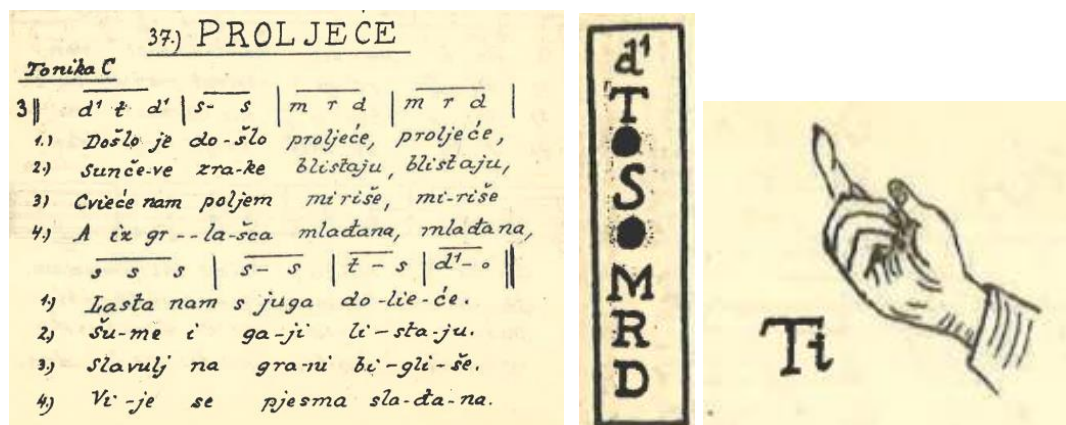 37.) PROLJEĆE
Tonika C
3|| d¹ t d¹ | s- s | m r d | m r d |
1.) Došlo je do-šlo proljeće, proljeće,
2.) Sunče-ve zra-ke blistaju, blistaju,
3) Cvieće nam poljem miriše, mi-riše
4.) A iz gr--la-šca mlađana, mlađana,
s s s | s- s | t - s | d¹- o ||
1.) Lasta nam s juga do-lie-će.
2.) Šu-me i ga-ji li-sta-ju.
3.) Slavulj na gra-ni bi-gli-še.
4.) Vi-je se pjesma sla-đa-na.
d¹
T
●
S
●
M
R
D
Ti